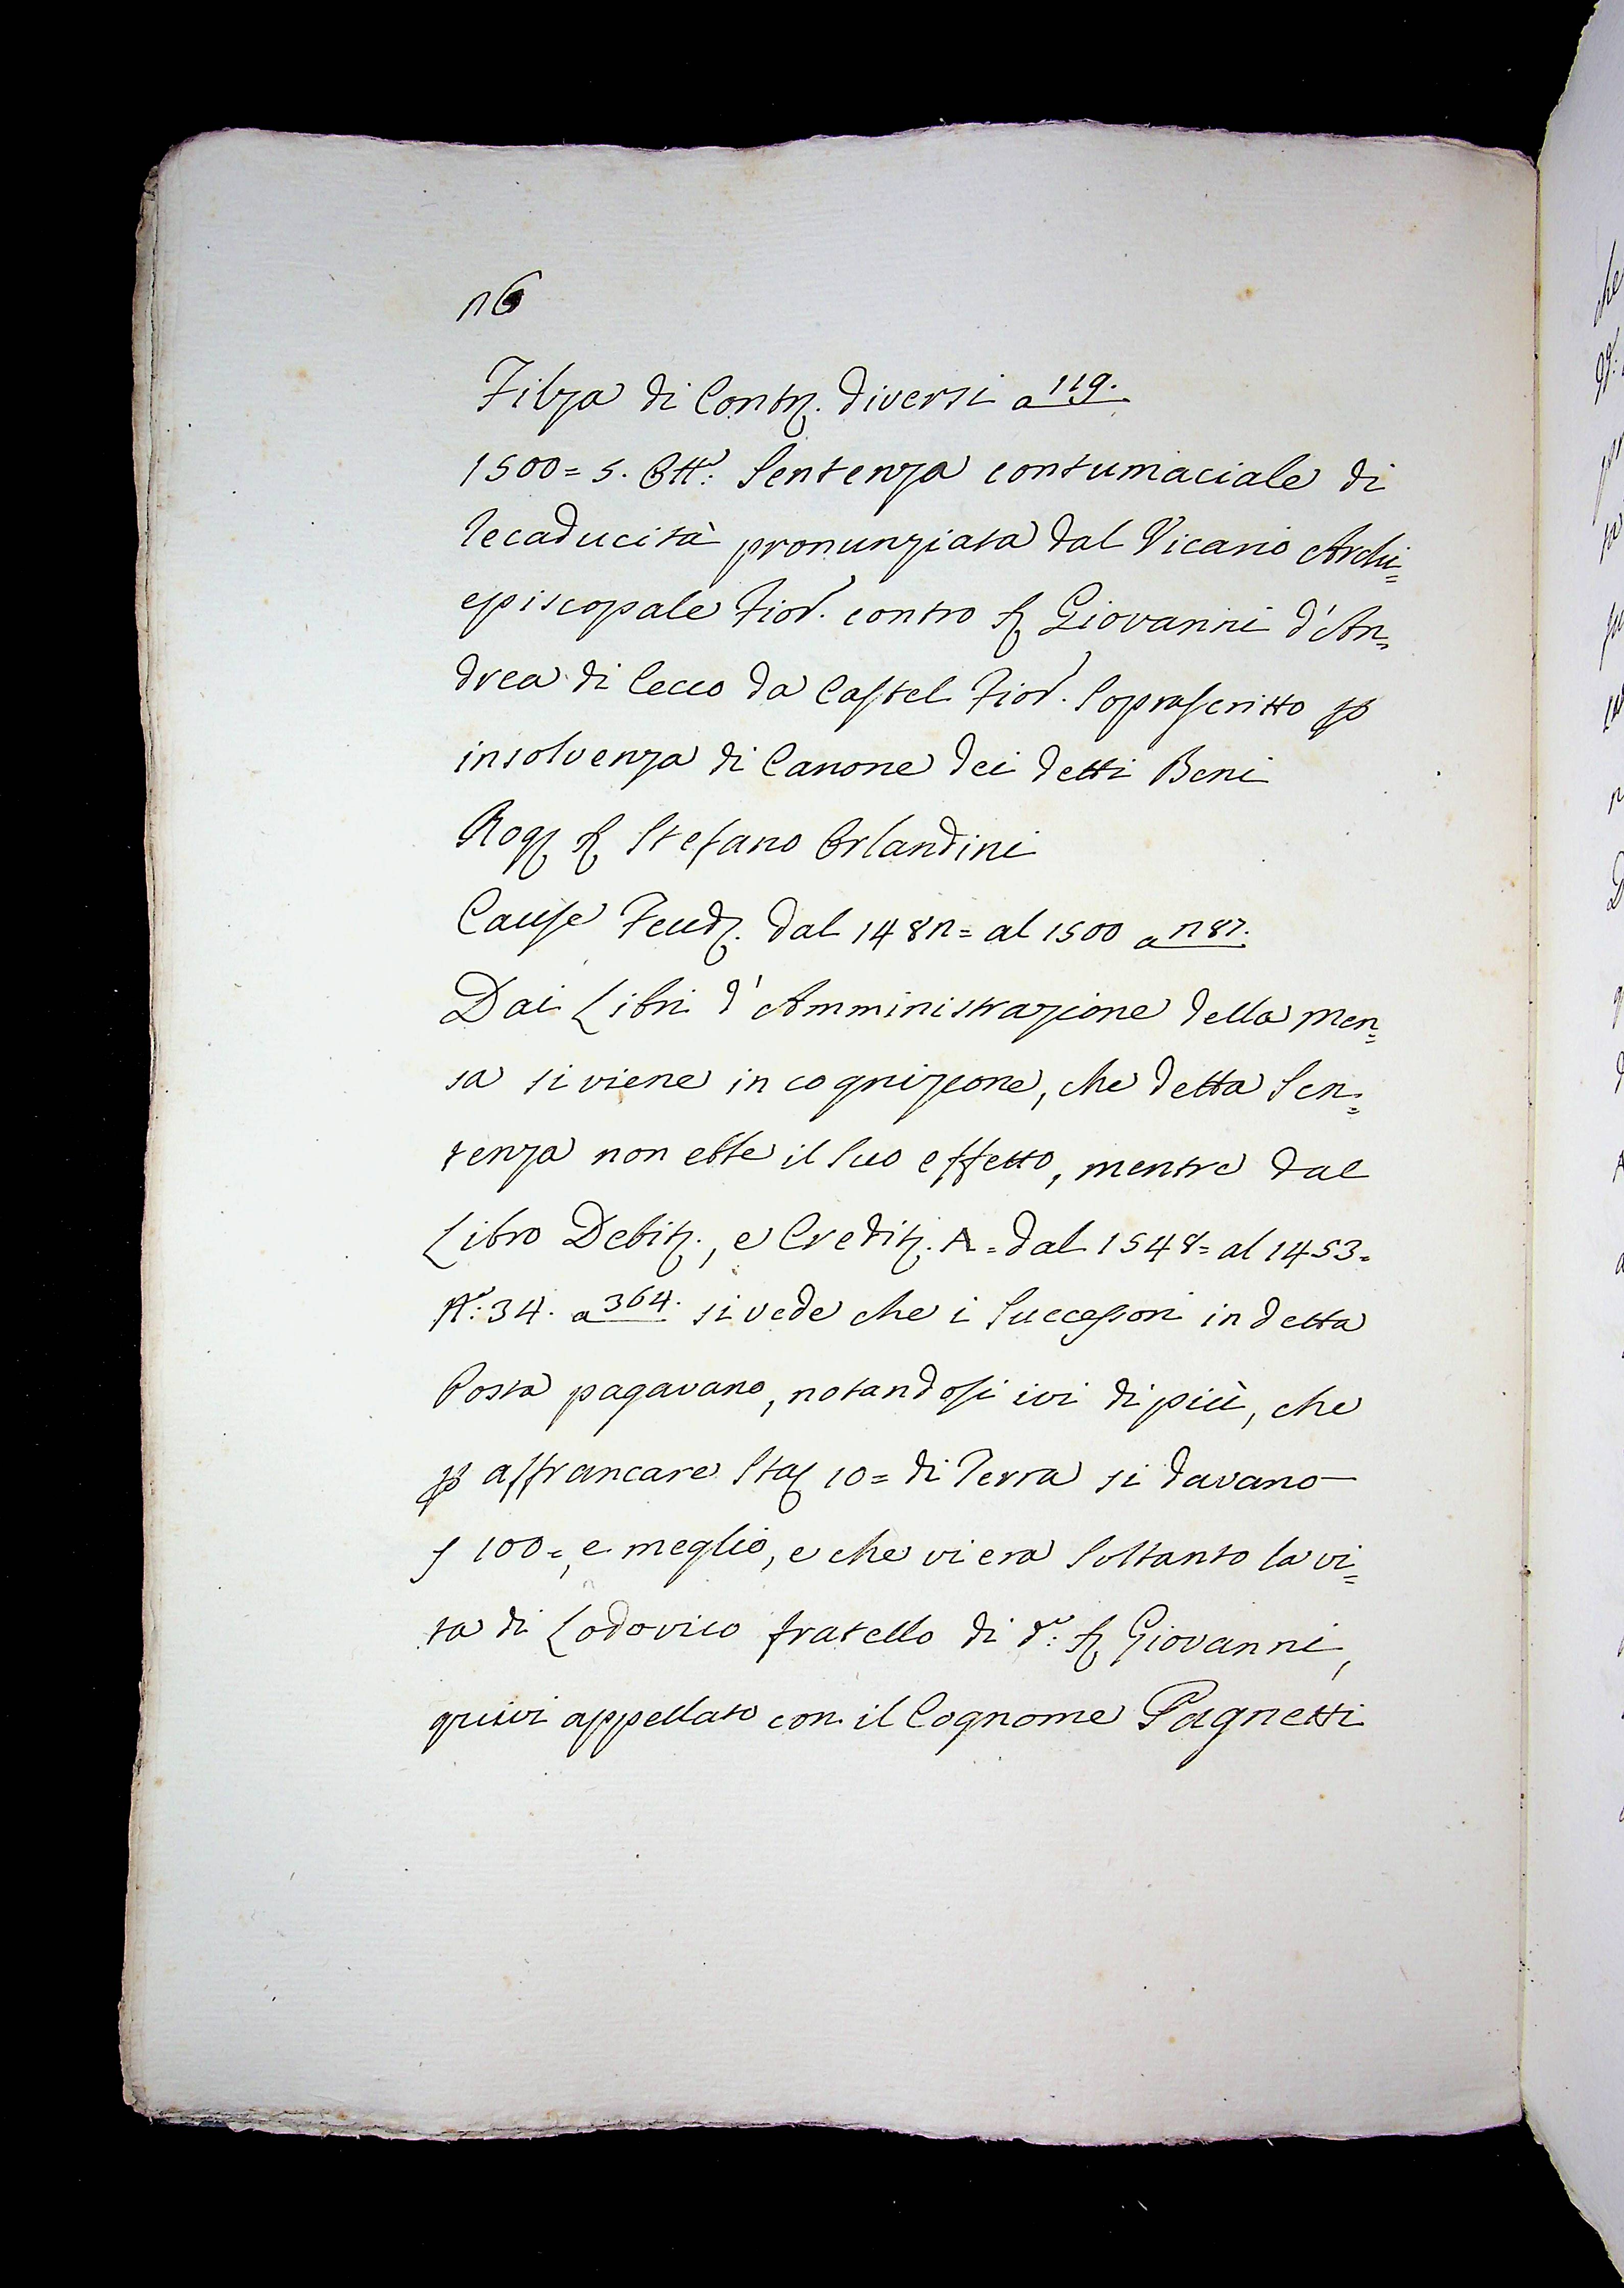 26
Filza di Contr. diversi a 119.
1500= 5. Ott.e: Sentenza contumaciale di
Tecaducità pronunziata dal Vicario Archi=
episcopale Fior. contro Ser Giovanni d'An=
drea di Cecco da Castel Fior. Soprascritto p
insolvenza di Canone dei detti Beni
Rog. Ser Stefano Orlandini
Cause Feud. dal 1482= al 1500 a 287.
Dai Libri d'Amministrazione della Men=
sa si viene in cognizione, che detta Sen=
tenza non ebbe il suo effetto, mentre dal
Libro Debit., e Credit. A= dal 1548= al 1453=
N.o: 34. a 364. si vede che i Successori in detta
Posta pagavano, notandosi ivi di più, che
p affrancare Sta 10= di Terra si davano
f 100=, e meglio, e che vi era Soltanto la vi=
ta di Lodovico fratello di d.o: Ser Giovanni,
quivi appellato con il Cognome Pagnetti